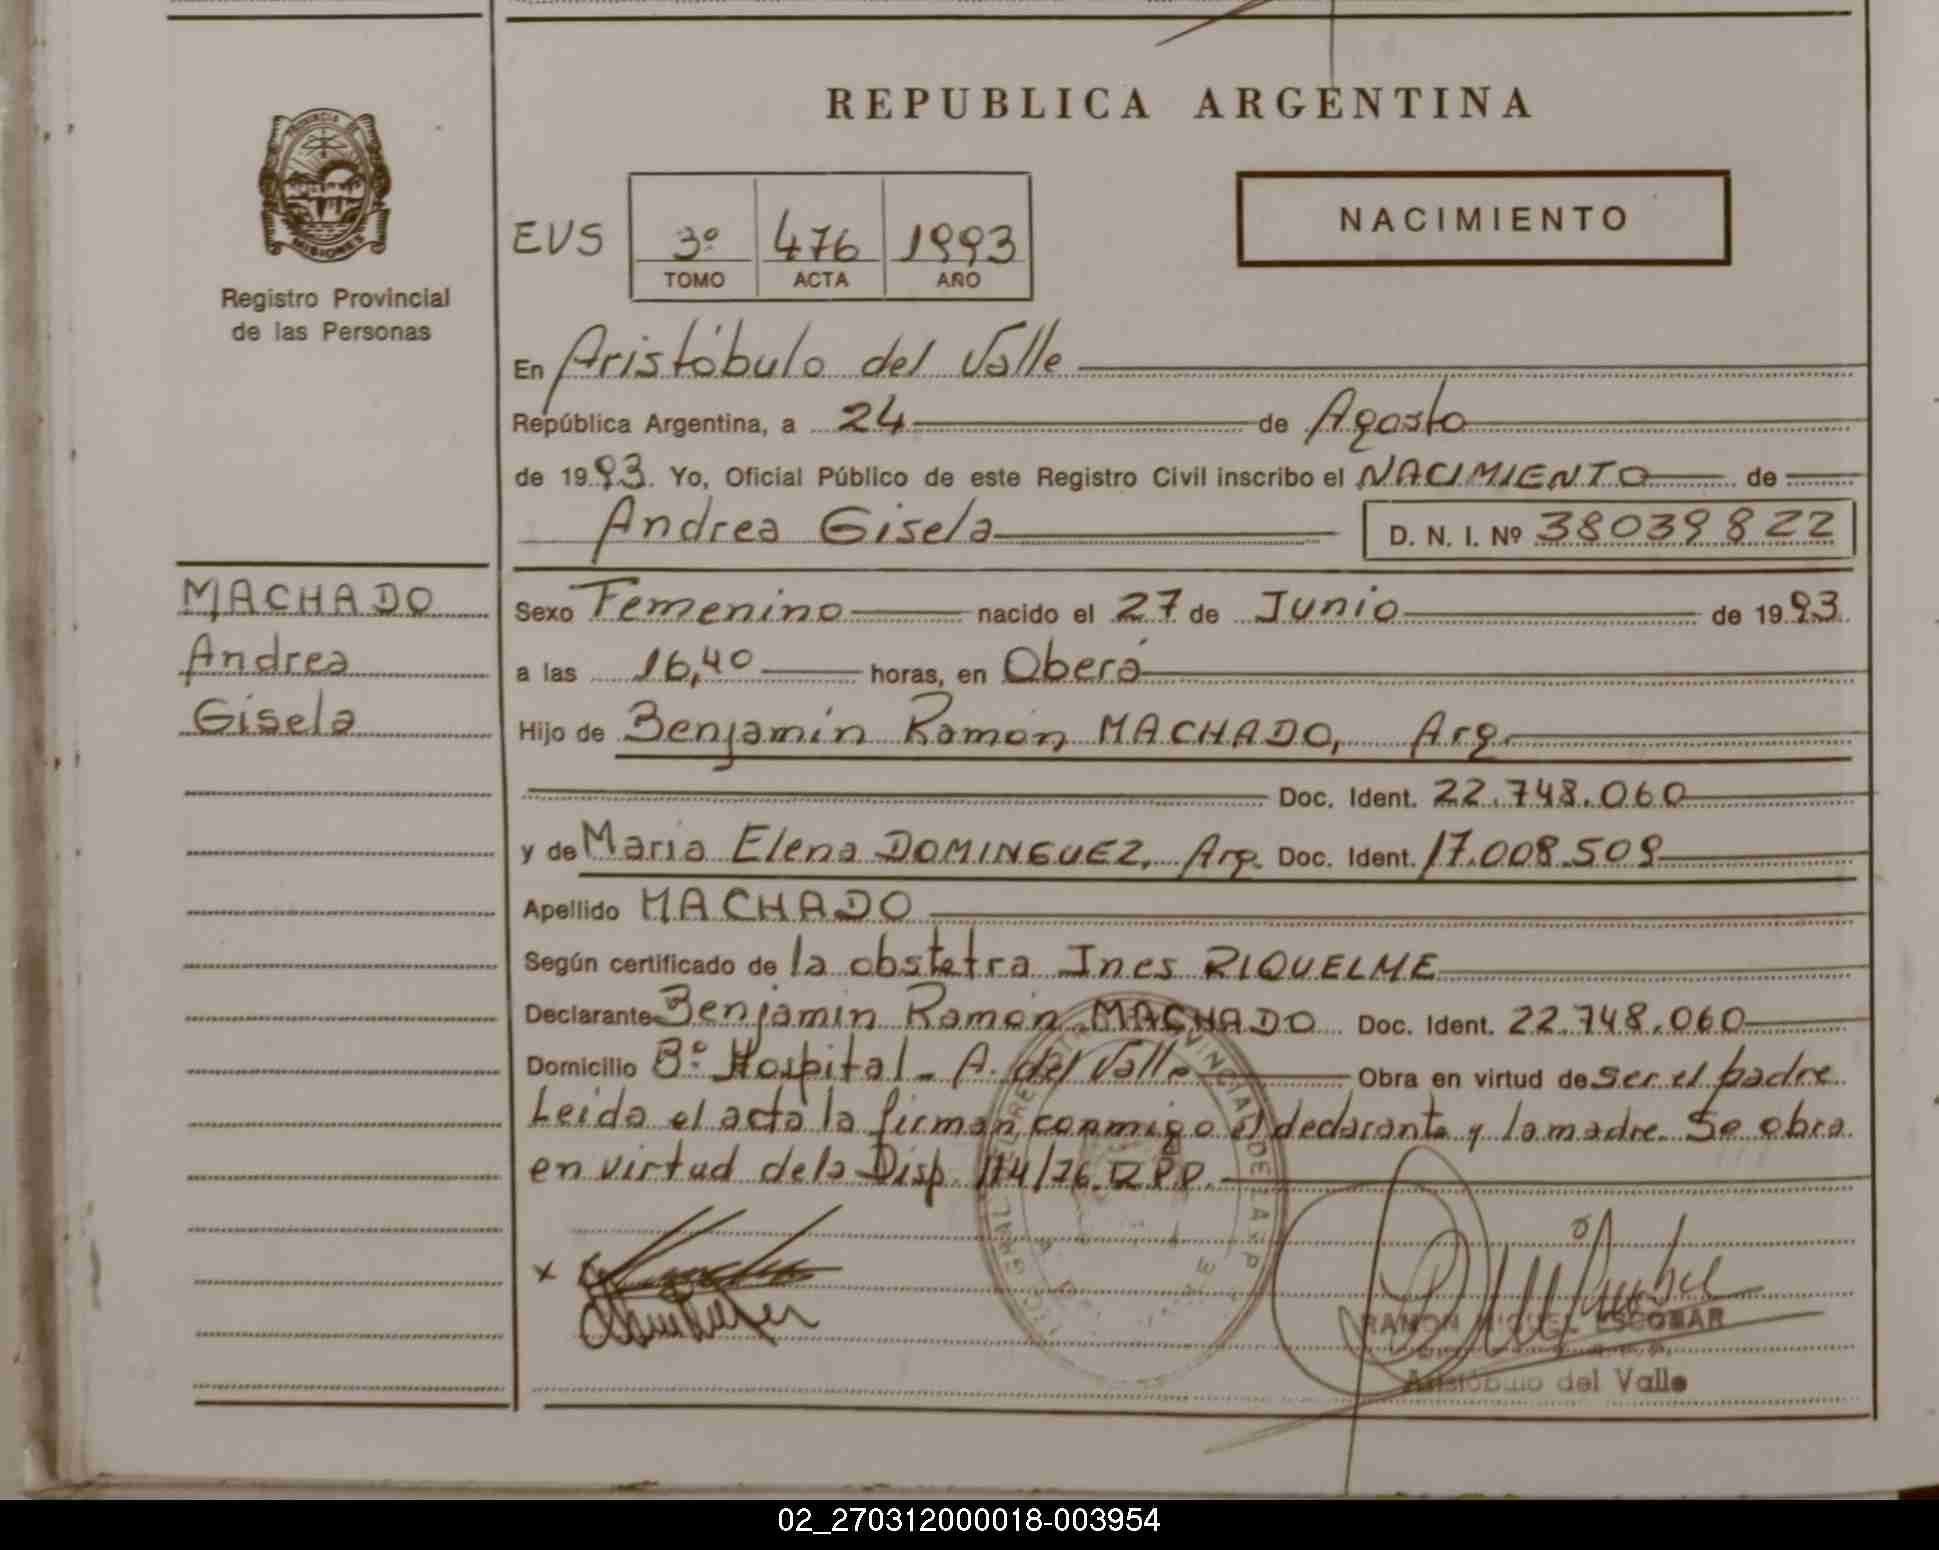 REPUBLICA ARGENTINA
PROVINCIA DE
MISIONES
Registro Provincial
de las Personas
EVS
3º 476 1993
TOMO ACTA AÑO
NACIMIENTO
En Aristóbulo del Valle
República Argentina, a 24 de Agosto
de 1993. Yo, Oficial Público de este Registro Civil inscribo el NACIMIENTO de
Andrea Gisela D. N. I. Nº 38039822
MACHADO
Andrea
Gisela
Sexo Femenino nacido el 27 de Junio de 1993.
a las 16,40 horas, en Oberá
Hijo de Benjamín Ramón MACHADO, Arg.
Doc. Ident. 22.748.060
y de María Elena DOMINGUEZ, Arg. Doc. Ident. 17.008.509
Apellido MACHADO
Según certificado de la obstetra Ines RIQUELME
Declarante Benjamín Ramón MACHADO Doc. Ident. 22.748.060
Domicilio Bº Hospital - A. del Valle Obra en virtud de ser el padre.
Leida el acta la firman conmigo el declarante y la madre. Se obra
en virtud de la Disp. 114/76. R.P.P.
RAMON MIGUEL ESCOBAR
Aristóbulo del Valle
02_270312000018-003954